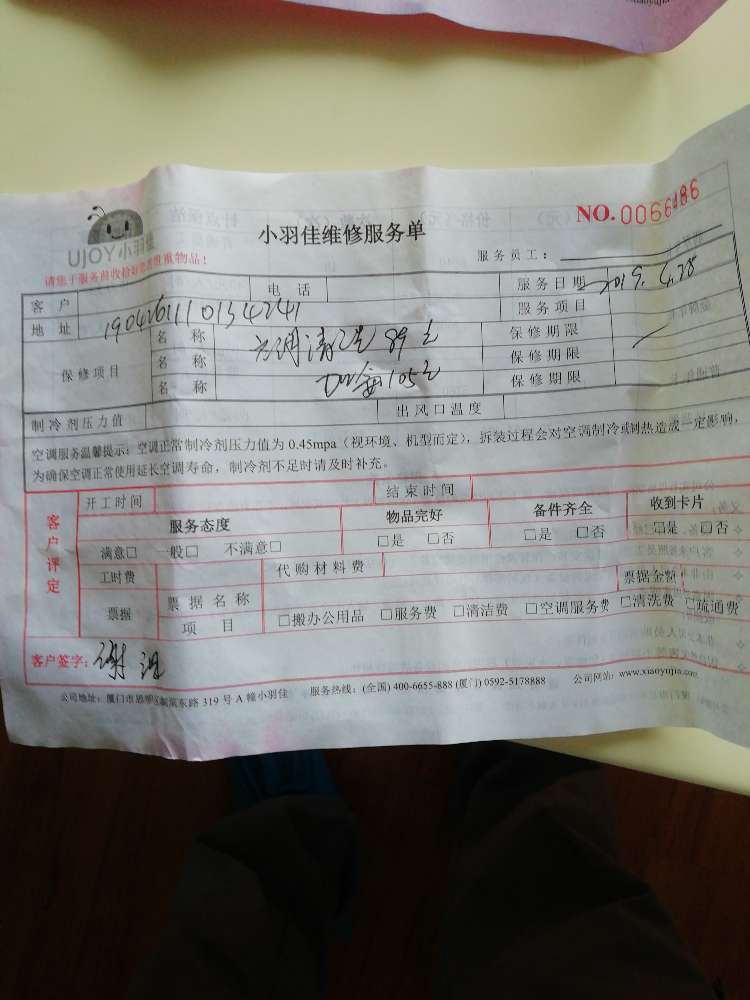 UJOY小羽佳
小羽佳维修服务单
NO. 0066486
请您于服务前收拾好您的贵重物品！
服务员工：
客户 电话 服务日期 2019. 4.28
地址 190426111013424 1 服务项目
保修项目
名称 空调清洗 89元 保修期限
名称 加氟105元 保修期限
名称 保修期限
制冷剂压力值 出风口温度
空调服务温馨提示：空调正常制冷剂压力值为 0.45mpa（视环境、机型而定），拆装过程会对空调制冷或制热造成一定影响，
为确保空调正常使用延长空调寿命，制冷剂不足时请及时补充。
客户评定
开工时间 结束时间
服务态度 物品完好 备件齐全 收到卡片
满意□ 一般□ 不满意□ □是 □否 □是 □否 □是 □否
工时费 代购材料费 票据金额
票据 票据名称
项目 □搬办公用品 □服务费 □清洁费 □空调服务费 □清洗费 □疏通费
客户签字：谢
公司地址：厦门市思明区 东路 319 号 A 幢小羽佳 服务热线：(全国) 400-6655-888 (厦门) 0592-5178888 公司网站：www.xiaoyujia.com